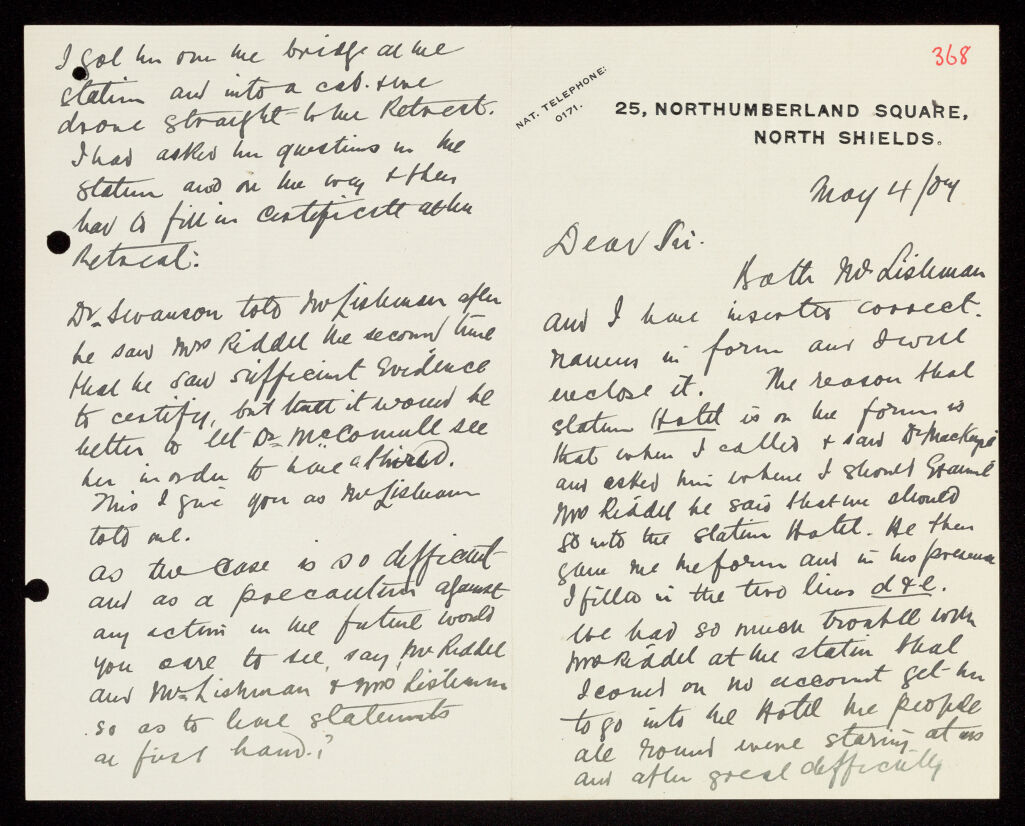 368
NAT. TELEPHONE:
0171.
25, NORTHUMBERLAND SQUARE,
NORTH SHIELDS.
May 4/04
Dear Sir.
Both Mr Lishman
and I have inserted correct.
names in form and I will
enclose it. The reason that
station Hotel is on the form is
that when I called & saw Dr MacKenzie
and asked him where I should Examine
Mrs Riddel he said that we should
go into the station Hotel. He then
gave me the form and in his presence
I filled in the two lines d & e.
We had so much trouble with
Mrs Riddel at the station that
I could on no account get her
to go into the Hotel the people
all round were staring at us
and after great difficulty
I got her over the bridge at the
station and into a cab. & we
drove straight to the Retreat.
I had asked her questions in the
station and on the way & then
had to fill in Certificate at the
Retreat:
Dr. Swanson told Mr Lishman after
he saw Mrs Riddel the second time
that he saw sufficient Evidence
to certify, but that it would be
better to let Dr McConnell see
her in order to have a third.
This I give you as Mr Lishman
told me.
as the case is so difficult
and as a precaution against
any action in the future would
you care to see, say, Mr Riddel
and Mr Lishman & Mrs Lishman
so as to have statements
at first hand.?